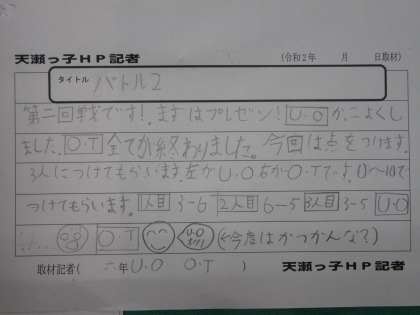 天瀬っ子HP記者 (令和2年 月 日取材)
タイトル バトル2
第二回戦です!まずはプレゼン!U.Oがこよくし
ました。O.T全てが終わりました。今回は点をつけます。
3人につけてもらいます。左がU.O右がO.Tです。1~10で
つけてもらいます。1人目3-6 2人目6-5 3人目3-5 U.O
O.T (←今度はかつかんな?)
取材記者( 六年U.O O.T ) 天瀬っ子HP記者